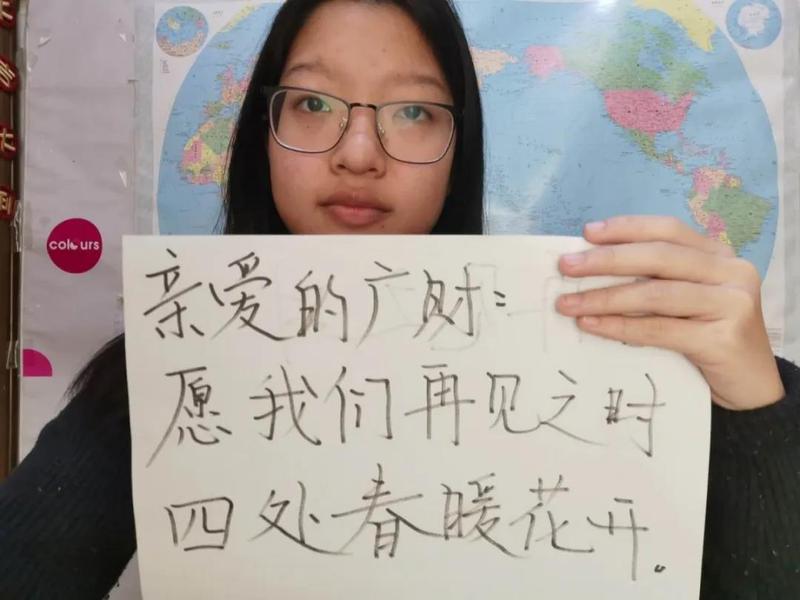 亲爱的广财：
愿我们再见之时
四处春暖花开。
colours